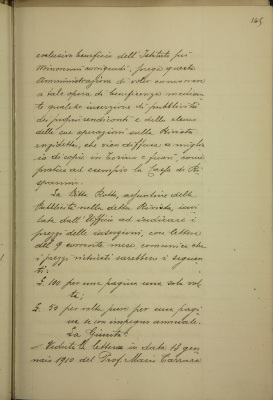 165
esclusivo beneficio dell'Istituto pei
Minorenni corrigendi, prega questa
Amministrazione di voler concorrere
a tale opera di beneficenza mediante
qualche inserzione di pubblicità
dei propri rendiconti e dello elenco
delle sue operazioni sulla Rivista
anzidetta, che vien diffusa a migliaia
di copie in Torino e fuori, come
pratica ad esempio la Cassa di Risparmio.
La Ditta Rotta, assuntrice della
Pubblicità nella detta Rivista, invitata
dall'Ufficio ad indicare i
prezzi delle inserzioni, con lettera
del 9 corrente mese comunica che
i prezzi richiesti sarebbero i seguenti:
£. 100 per una pagina una sola volta;
£. 50 per volta pure per una pagina
se con impegno annuale.
La Giunta:
Veduta la lettera in data 18 gennaio
1910 del Prof. Mario Carrara